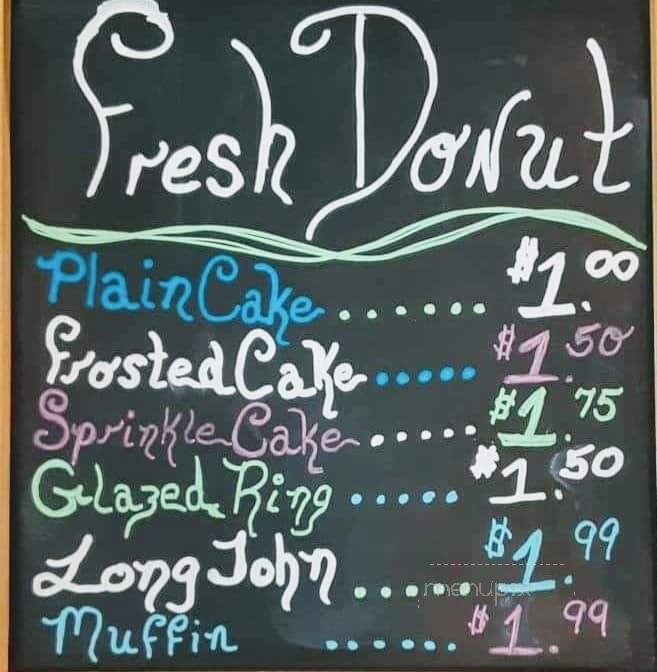 Fresh Donut
Plain Cake ...... $1.00
Frosted Cake ..... $1.50
Sprinkle Cake ..... $1.75
Glazed Ring ..... $1.50
Long John .... $1.99
menupix
Muffin ...... $1.99